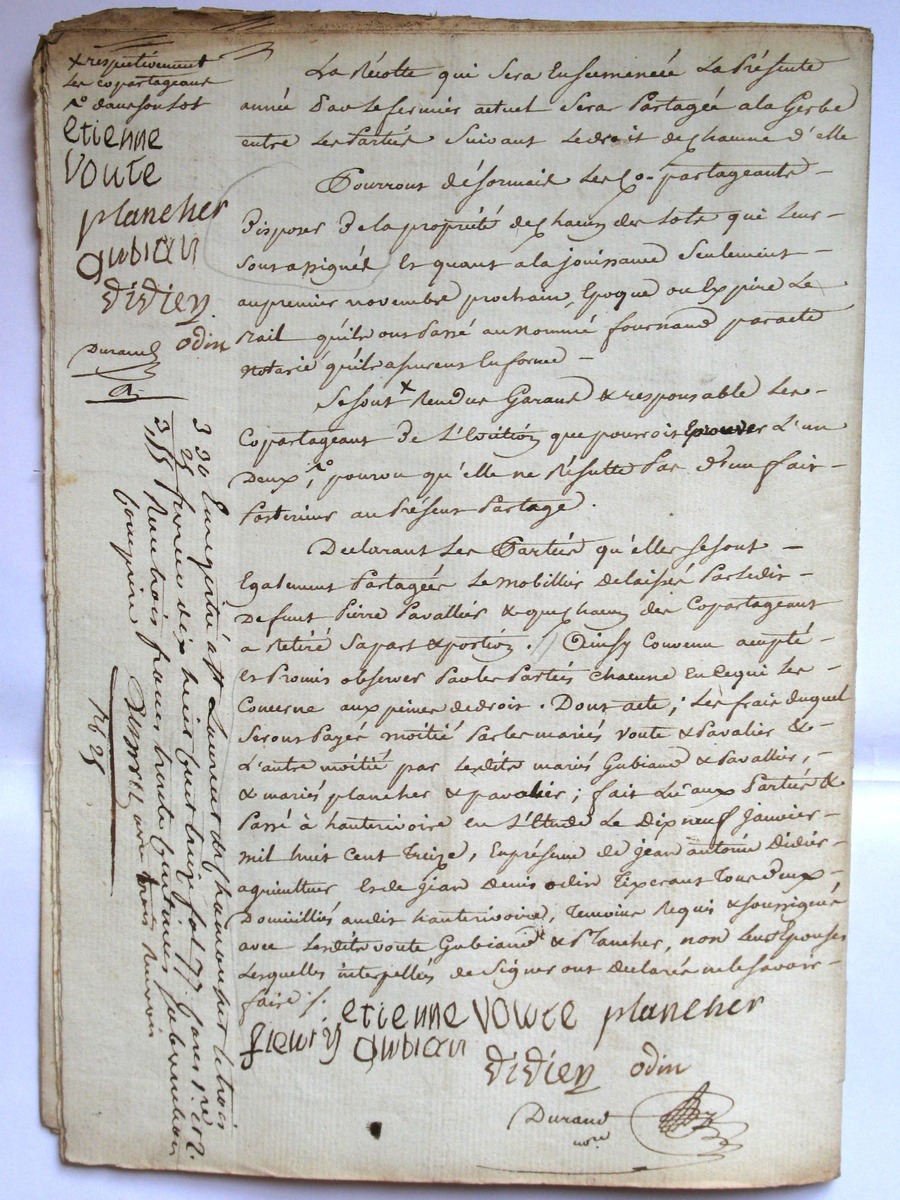 x respectivement
Les copartageans
dans son lot
etienne
Voute
plancher
gubian
didier
Durand odin
La Récolte qui Sera Ensemencée La Présente
année Par Le fermier actuel Sera Partagée a la Gerbe
entre Les Partiés Suivant Le droit de chacune d'elle
Pourront désormais Les Co-partageants
Disposer De la propriété de chacun des Lots qui Leurs
Sont assignés Et quant a la jouissance Seulement
au premier novembre prochain, Epoque ou Expire Le
Bail qu'ils ont Passé au nommé fournand par acte
Notarié qu'ils assurent En forme
Se sont x Rendus Garans & responsable Les
Copartageant De L'Eviction que pourroit Eprouver L'un
Deux, pourvu qu'elle ne Résulte Pas d'un fait
Postérieur au Présent Partage.
Declarant Les Partiés qu'elles se sont
Egalement Partagées Le mobillier delaissé Par Ledit
Defunt Pierre Pavallier & que chacun des Copartageant
a Retiré Sa part & portion. Ainsy Convenu accepté
Et Promis observer Par Les Partiés chacune En Ce qui Les
Concerne aux peines de droit. Dont acte; Les frais duquel
Seront Payés moitié Par les mariés Voute & Pavalier &
L'autre moitié par Lesdits mariés Gubiand & Pavallier,
& mariés plancher & pavalier; fait Lû aux Partiés &
Passé à hauterivoire En L'Etude Le Dix neuf Janvier
mil huit Cent Treize, En présence de jean antoine Didier
agriculteur Et de jean Denis odin Tixerant Tous Deux
Domicilliés audit hauterivoire, Temoins Requis & Soussignés
avec Lesdits voute Gubiand & Plancher, non Leurs Epouses
Lesquelles interpellées de Signer ont déclarés ne le Savoir
faire ./.
etienne Voute plancher
fleury gubian
didier odin
Durand
nore
3 30 Enregistré à St Laurent de chamousset le trois
25 fevrier dix huit cent treize fol 77
3,55 Reçu trois francs trente centimes